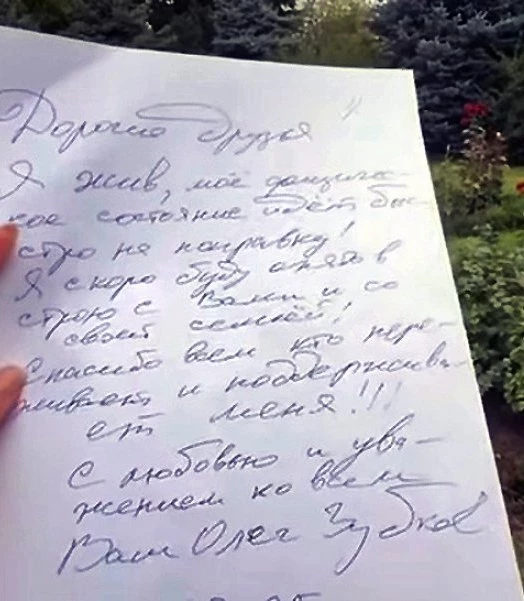 Дорогие друзья
Я жив, моё физиче-
ское состояние идёт бы-
стро на поправку!
Я скоро буду опять в
строю с Вами и со
своей семьёй!
Спасибо всем кто пере-
живает и поддержива-
ет меня!!!
С любовью и ува-
жением ко всем
Ваш Олег Зубков